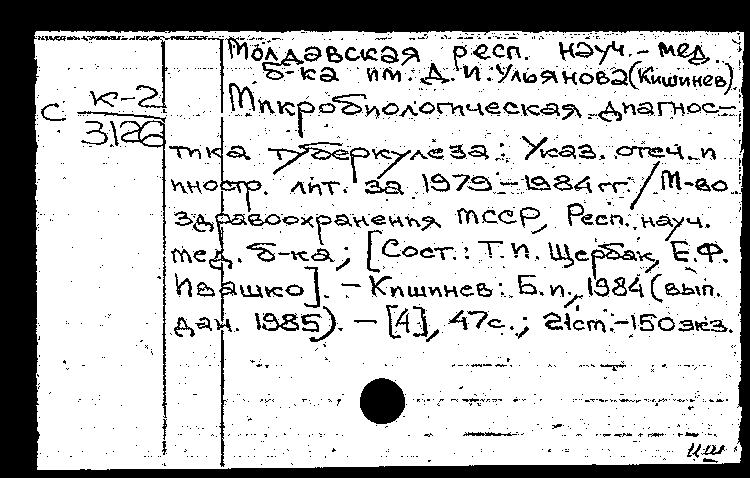 Молдавская респ. науч.-мед.
б-ка им. Д.И.Ульянова(Кишинев)
С К-2
3126
Микробиологическая диагнос-
тика туберкулеза: Указ. отеч. и
иностр. лит. за 1979-1984 гг. /М-во
здравоохранения МССР, Респ. науч.
мед. б-ка; [Сост.: Т.И. Щербак, Е.Ф.
Ивашко]. - Кишинев: Б.и., 1984 (вып.
дан. 1985). - [4], 47с.; 21см.-150экз.